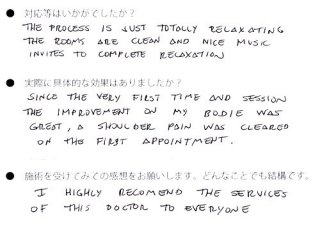 ● 対応等はいかがでしたか?
THE PROCESS IS JUST TOTALLY RELAXATING
THE ROOMS ARE CLEAN AND NICE MUSIC
INVITES TO COMPLETE RELAXATION
● 実際に具体的な効果はありましたか?
SINCE THE VERY FIRST TIME AND SESSION
THE IMPROVEMENT ON MY BODIE WAS
GREAT, A SHOULDER PAIN WAS CLEARED
ON THE FIRST APPOINTMENT.
● 施術を受けてみての感想をお願いします。どんなことでも結構です。
I HIGHLY RECOMEND THE SERVICES
OF THIS DOCTOR TO EVERYONE